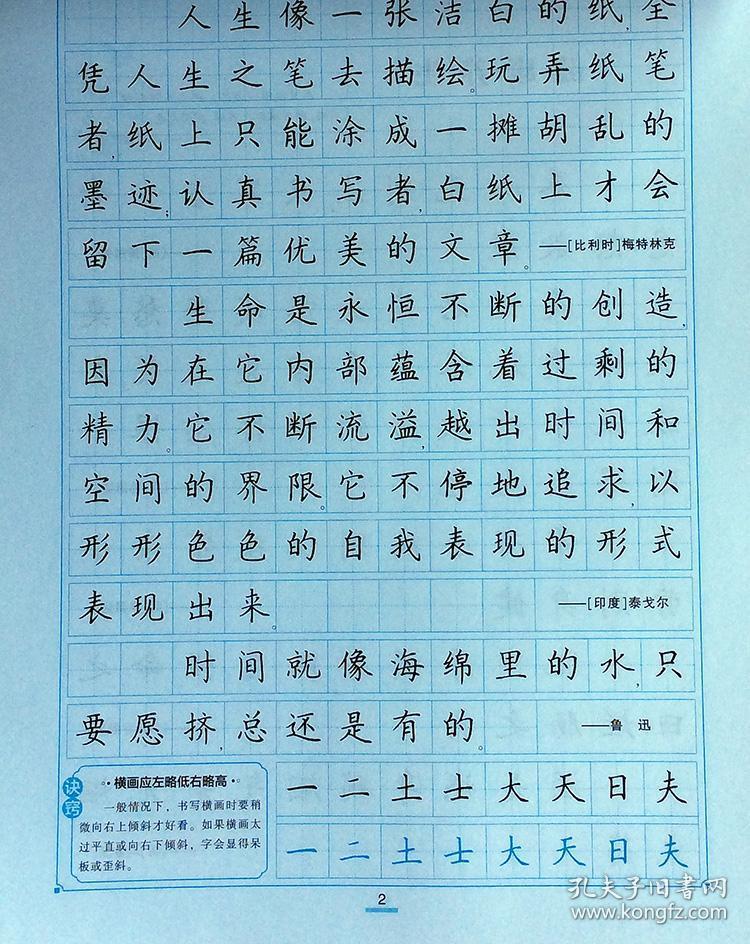 人生像一张洁白的纸,全
凭人生之笔去描绘。玩弄纸笔
者,纸上只能涂成一摊胡乱的
墨迹;认真书写者,白纸上才会
留下一篇优美的文章。——[比利时]梅特林克
生命是永恒不断的创造,
因为在它内部蕴含着过剩的
精力。它不断流溢,越出时间和
空间的界限。它不停地追求,以
形形色色的自我表现的形式
表现出来。——[印度]泰戈尔
时间就像海绵里的水,只
要愿挤,总还是有的。——鲁迅
诀窍
·横画应左略低右略高·
一般情况下,书写横画时要稍
微向右上倾斜才好看。如果横画太
过平直或向右下倾斜,字会显得呆
板或歪斜。
一二土士大天日夫
一二土士大天日夫
2
孔夫子旧书网
www.kongfz.com